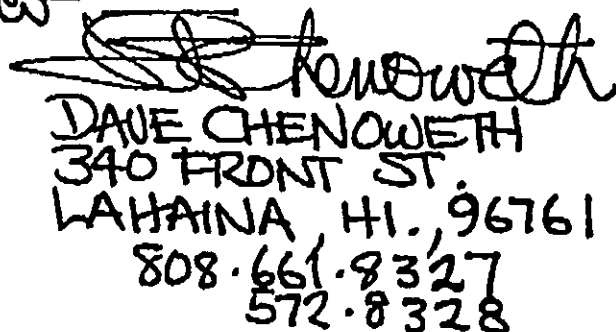 Chenoweth
DAVE CHENOWETH
340 FRONT ST.
LAHAINA, HI., 96761
808.661.8327
572.8328